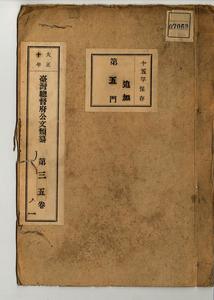 07053
十五年保存
追加
第五門
大正
十年
臺灣總督府公文類纂
第三五卷
ノ一